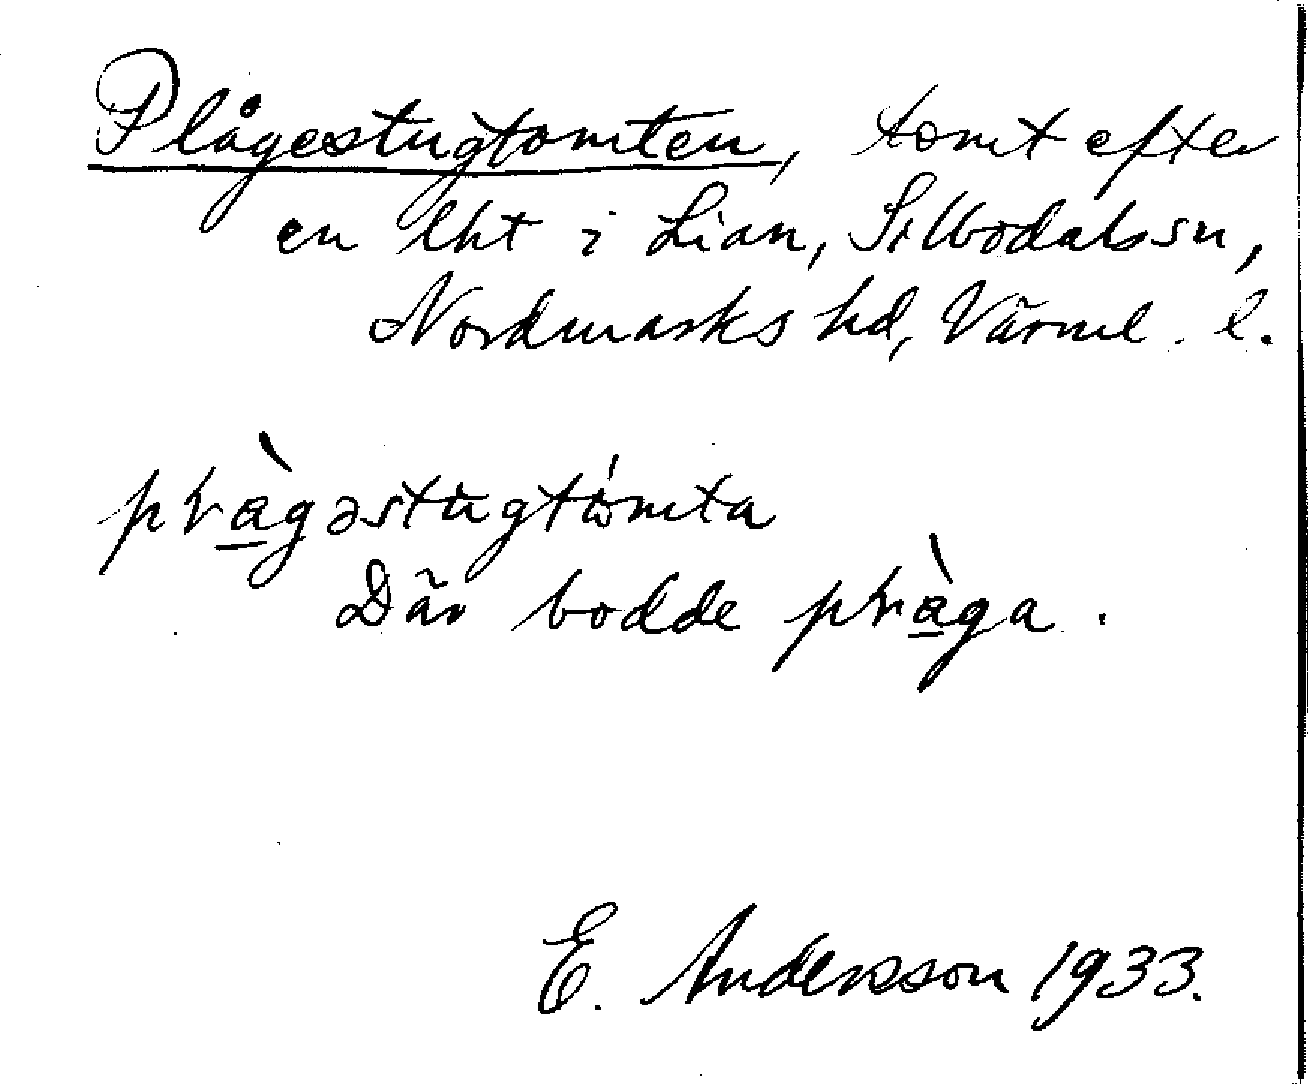 Plågestugtomten, tomt efter
en lht i Lian, Silbodals sn,
Nordmarks hd, Värml. l.
pɽàgəstùgtómta
Där bodde pɽàga.
E. Andersson 1933.